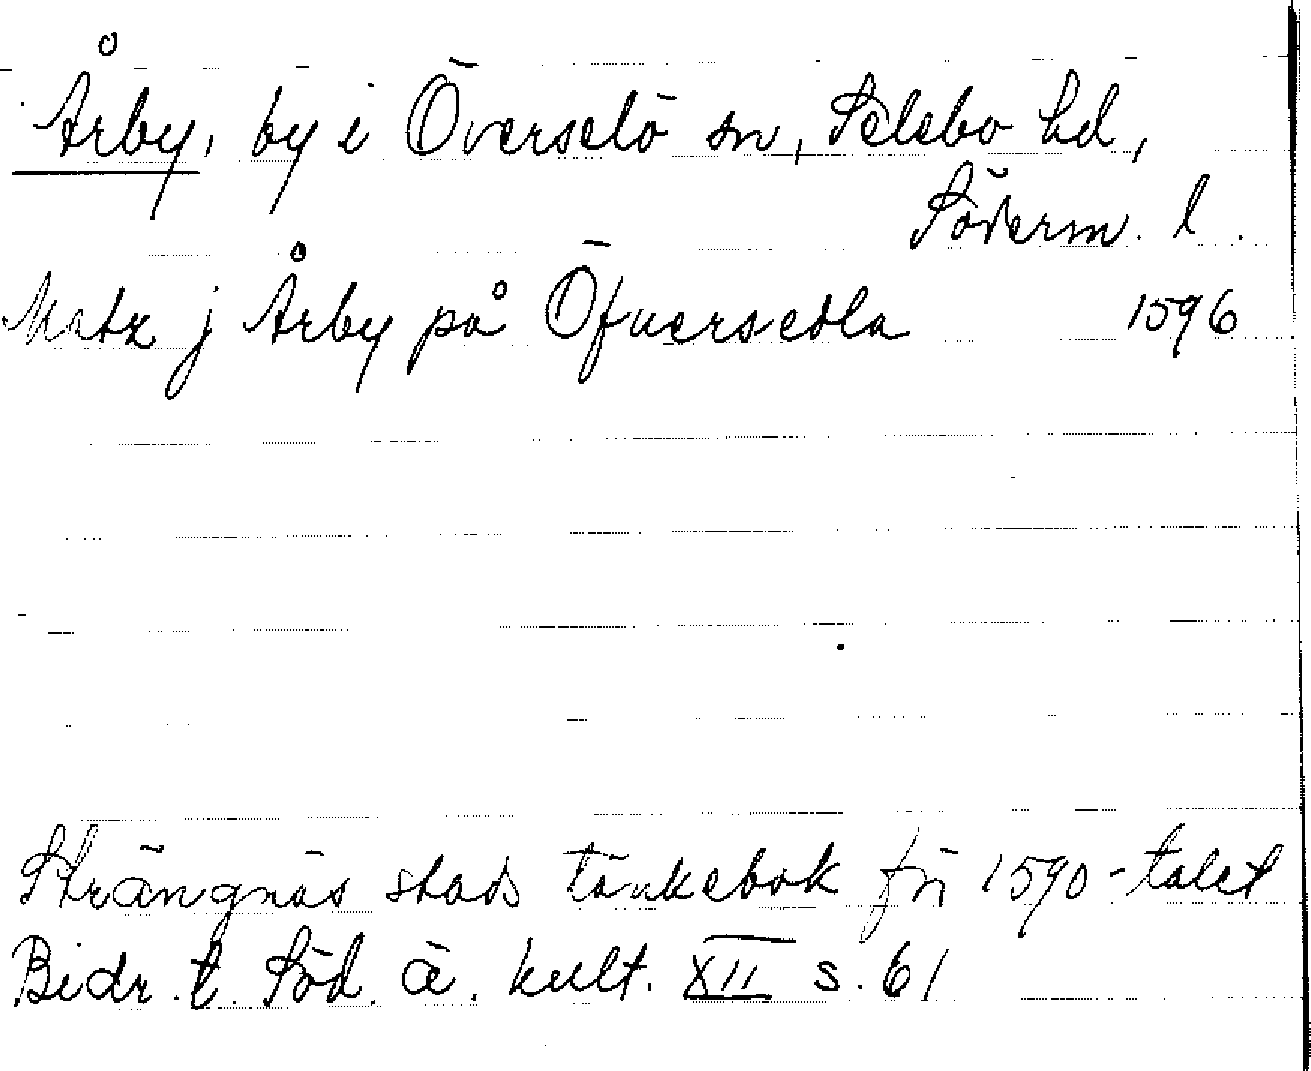 Årby, by i Överselö sn, Selebo hd,
Söderm. l.
Matz j Årby på Öfuersedla 1596
Strängnäs stads tänkebok frn 1590-talet
Bidr. t. Söd. ä. kult. XII s. 61